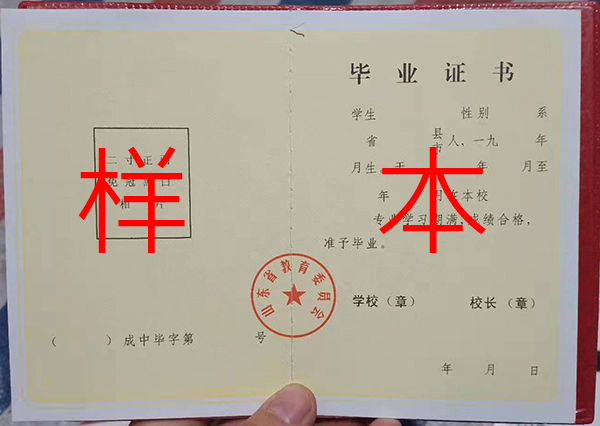 毕业证书
学生 性别 系
省 县市 人，一九 年
月生 于 年 月至
年 月在本校
专业学习期满，成绩合格，
准予毕业。
学校（章） 校长（章）
年 月 日
二寸正面
免冠黑白
相 片
山东省教育委员会
（ ）成中毕字第 号
样本